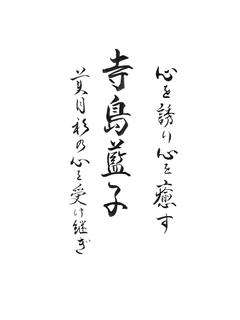 心を誘り心を癒す
寺島藍子
真目彩の心を受け継ぎ